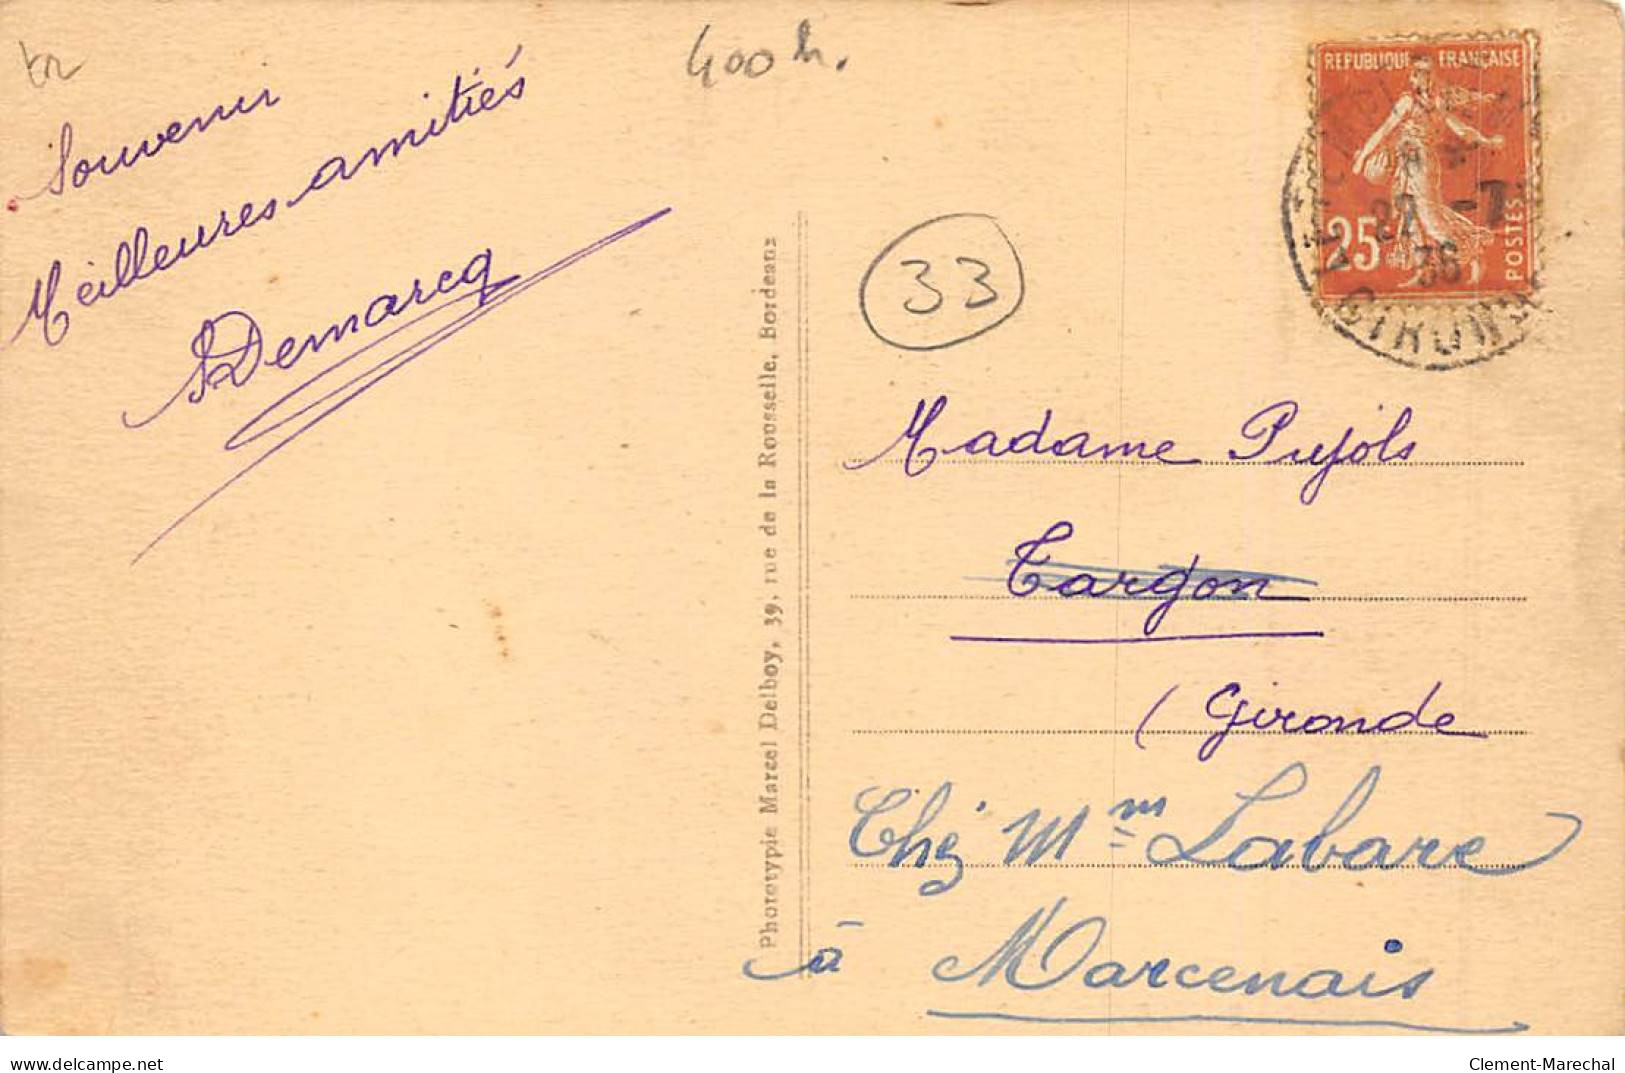 400 h.
Souvenir
Meilleures amitiés
SDemarcq
Phototypie Marcel Delboy, 39, rue de la Rousselle, Bordeaux
33
REPUBLIQUE FRANÇAISE
25
POSTES
22 -7
36
GIRONDE
Madame Pujols
Targon
(Gironde
Chez Mme Labare
à Marcenais
www.delcampe.net
Clement-Marechal